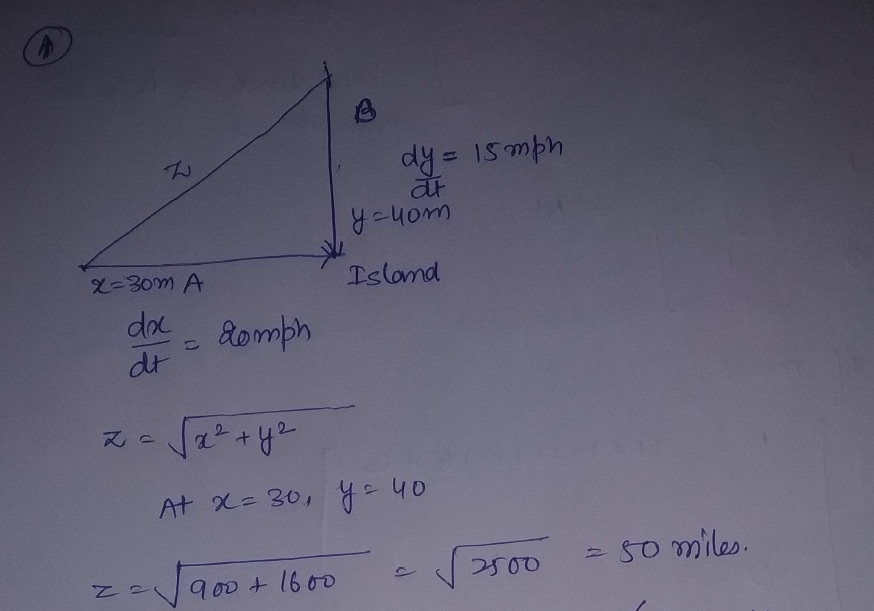 A
B
z
dy/dt = 15mph
y=40m
x=30m A
Island
dx/dt = 20mph
z = √x²+y²
At x=30, y=40
z = √900+1600 = √2500 = 50 miles.